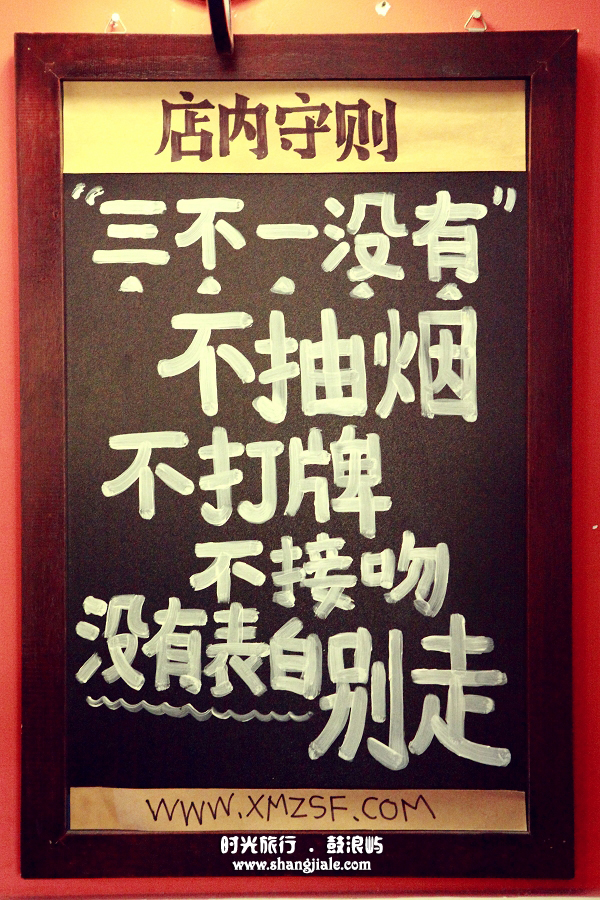 店内守则
“三不一没有”
不抽烟
不打牌
不接吻
没有表白别走
WWW.XMZSF.COM
时光旅行 . 鼓浪屿
www.shangjiale.com